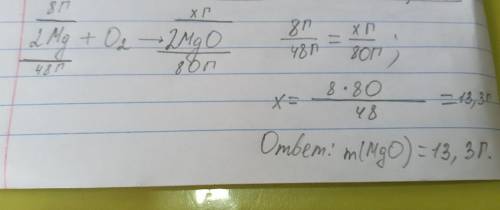 8г хг
2Mg + O₂ → 2MgO
48г 80г
8г/48г = хг/80г;
х = 8·80/48 = 13,3г.
Ответ: m(MgO) = 13,3г.